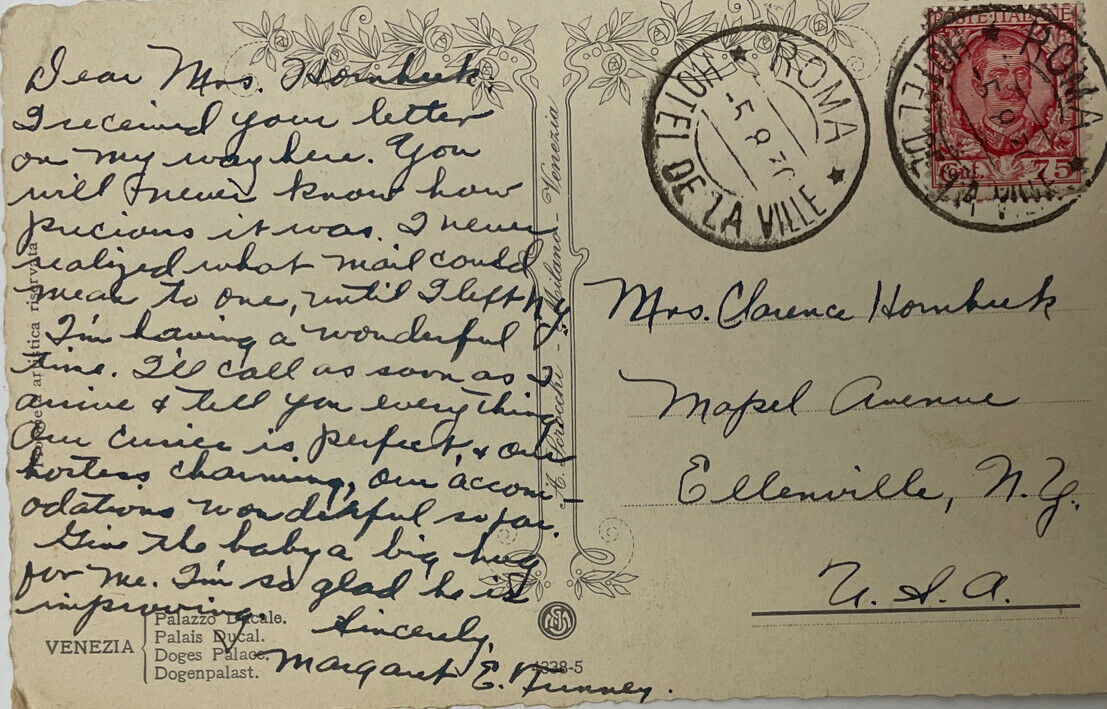 Dear Mrs. Hornbeek.
I received your letter
on my way here. You
will never know how
precious it was. I never
realized what mail could
mean to one, until I left N.Y.
I'm having a wonderful
time. I'll call as soon as I
arrive & tell you everything
Our cusice is perfect, & our
hostess charming, our accom-
odations wonderful so far.
Give the baby a big hug
for me. I'm so glad he is
improving.
Sincerely,
Margaret E.
VENEZIA
Palazzo Ducale.
Palais Ducal.
Doges Palace.
Dogenpalast.
artistica riservata
Milano - Venezia
4338-5
ROMA
HOTEL DE LA VILLE
-5 8 30
POSTE ITALIANE
Cent. 75
ROMA
HOTEL DE LA VILLE
Mrs. Clarence Hornbeek
Mapel Avenue
Ellenville, N.Y.
U.S.A.